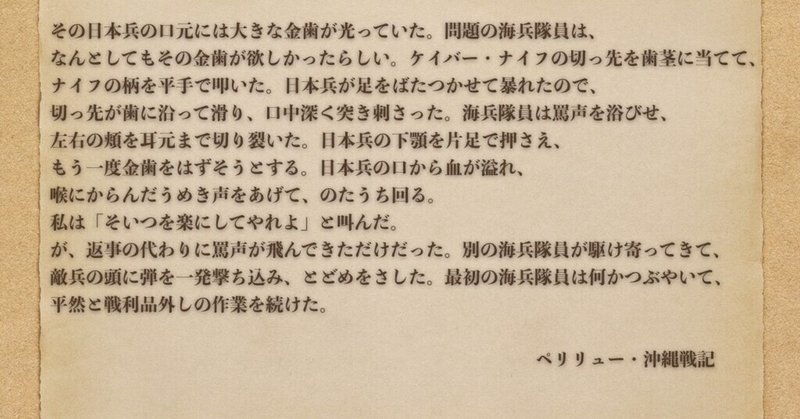 その日本兵の口元には大きな金歯が光っていた。問題の海兵隊員は、
なんとしてもその金歯が欲しかったらしい。ケイバー・ナイフの切っ先を歯茎に当てて、
ナイフの柄を平手で叩いた。日本兵が足をばたつかせて暴れたので、
切っ先が歯に沿って滑り、口中深く突き刺さった。海兵隊員は罵声を浴びせ、
左右の頬を耳元まで切り裂いた。日本兵の下顎を片足で押さえ、
もう一度金歯をはずそうとする。日本兵の口から血が溢れ、
喉にからんだうめき声をあげて、のたうち回る。
私は「そいつを楽にしてやれよ」と叫んだ。
が、返事の代わりに罵声が飛んできただけだった。別の海兵隊員が駆け寄ってきて、
敵兵の頭に弾を一発撃ち込み、とどめをさした。最初の海兵隊員は何かつぶやいて、
平然と戦利品外しの作業を続けた。
ペリリュー・沖縄戦記